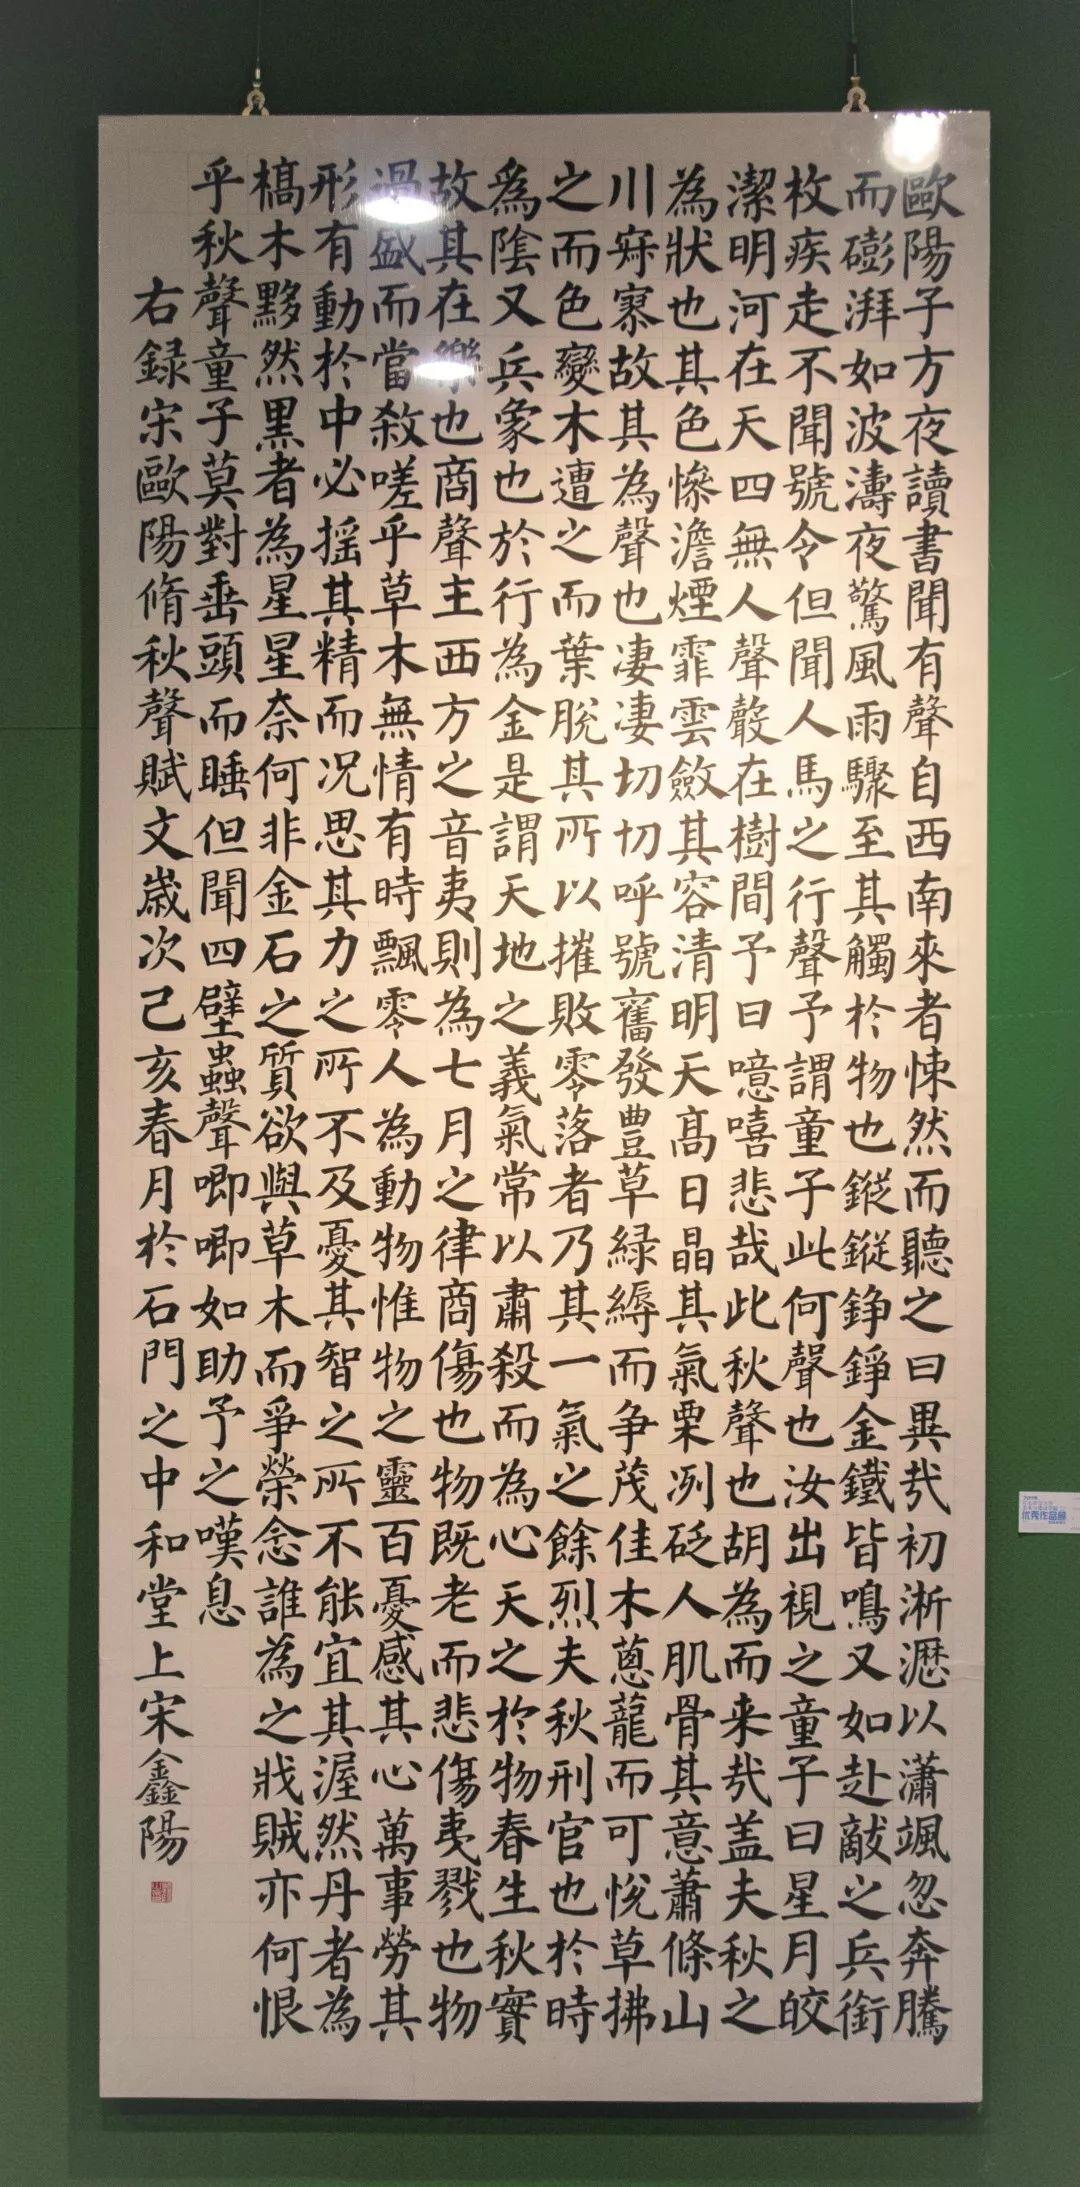 歐陽子方夜讀書聞有聲自西南來者悚然而聽之曰異哉初淅瀝以瀟颯忽奔騰
而湃如波濤夜驚風雨驟至其觸於物也鏦鏦錚錚金鐵皆鳴又如赴敵之兵銜
枚疾走不聞號令但聞人馬之行聲予謂童子此何聲也汝出視之童子曰星月皎
潔明河在天四無人聲聲在樹間予曰噫嘻悲哉此秋聲也胡為而来哉盖夫秋之
為狀也其色慘澹煙霏雲斂其容清明天高日晶其氣栗冽砭人肌骨其意蕭條山
川寂寥故其為聲也凄凄切切呼號奮發豊草緑縟而争茂佳木蔥蘢而可悅草拂
之而色變木遭之而葉脫其所以摧敗零落者乃其一氣之餘烈夫秋刑官也於時
為陰又兵象也於行為金是謂天地之義氣常以肅殺而為心天之於物春生秋實
故其在樂也商聲主西方之音夷則為七月之律商傷也物既老而悲傷夷戮也物
過盛而當殺嗟乎草木無情有時飄零人為動物惟物之靈百憂感其心萬事勞其
形有動於中必摇其精而况思其力之所不及憂其智之所不能宜其渥然丹者為
槁木黟然黑者為星星奈何非金石之質欲與草木而爭榮念誰為之戕賊亦何恨
乎秋聲童子莫對垂頭而睡但聞四壁蟲聲唧唧如助予之嘆息
右録宋歐陽脩秋聲賦文歲次己亥春月於石門之中和堂上宋鑫陽
优秀作品展